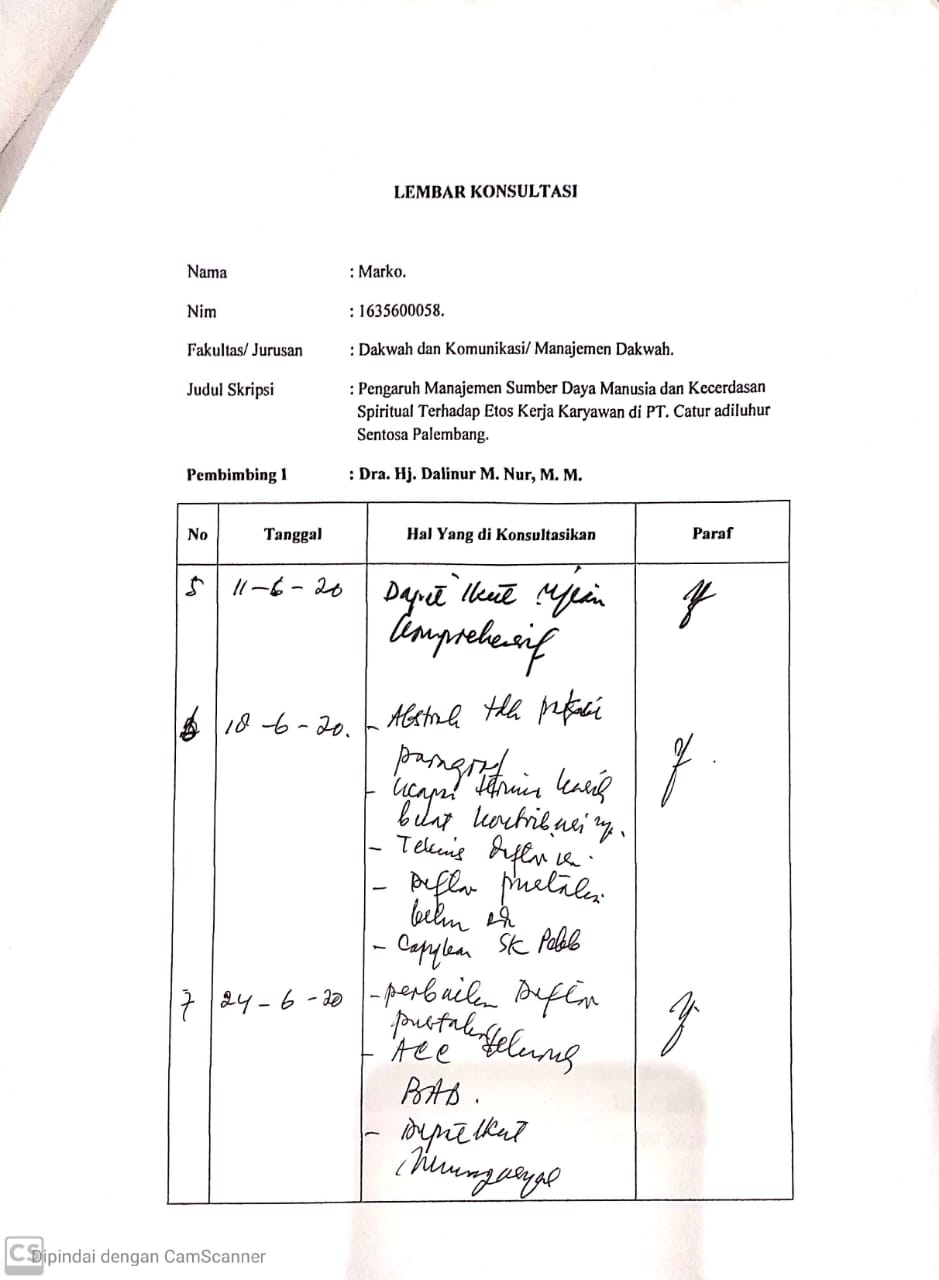 LEMBAR KONSULTASI
Nama : Marko.
Nim : 1635600058.
Fakultas/ Jurusan : Dakwah dan Komunikasi/ Manajemen Dakwah.
Judul Skripsi : Pengaruh Manajemen Sumber Daya Manusia dan Kecerdasan
Spiritual Terhadap Etos Kerja Karyawan di PT. Catur adiluhur
Sentosa Palembang.
Pembimbing 1 : Dra. Hj. Dalinur M. Nur, M. M.
No Tanggal Hal Yang di Konsultasikan Paraf
5 11-6-20 Dapat ikut ujian
Comprehensif
6 18-6-20. - Abstrak
paragraf
- ucapan terima kasih
buat
- Teknis Daftar isi.
- Daftar pustaka
belum
- SK
7 24-6-20 - perbaikan Daftar
pustaka
- ACC
BAB.
- Dapat ikut
CS Dipindai dengan CamScanner